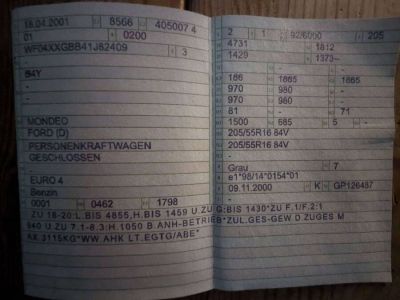 18.04.2001 8566 405007 4
01 0200
WF04XXGBB41J82409 3
-
B4Y
-
-
MONDEO
FORD (D)
PERSONENKRAFTWAGEN
GESCHLOSSEN
-
EURO 4
Benzin
0001 0462 1798
2 1 92/6000 205
4731 1812
1429 1373-
-
186 1865 1865
970 980 -
970 980 -
81 - 71
1500 685 5 -
205/55R16 84V
205/55R16 84V
-
-
Grau 7
e1*98/14*0154*01
09.11.2000 K GP126487
ZU 18-20:L.BIS 4855,H.BIS 1459 U.ZU G:BIS 1430*ZU F.1/F.2:1
640 U.ZU 7.1-8.3:H.1050 B.ANH-BETRIEB*ZUL.GES-GEW D.ZUGES M
AX 3115KG*WW.AHK LT.EGTG/ABE*